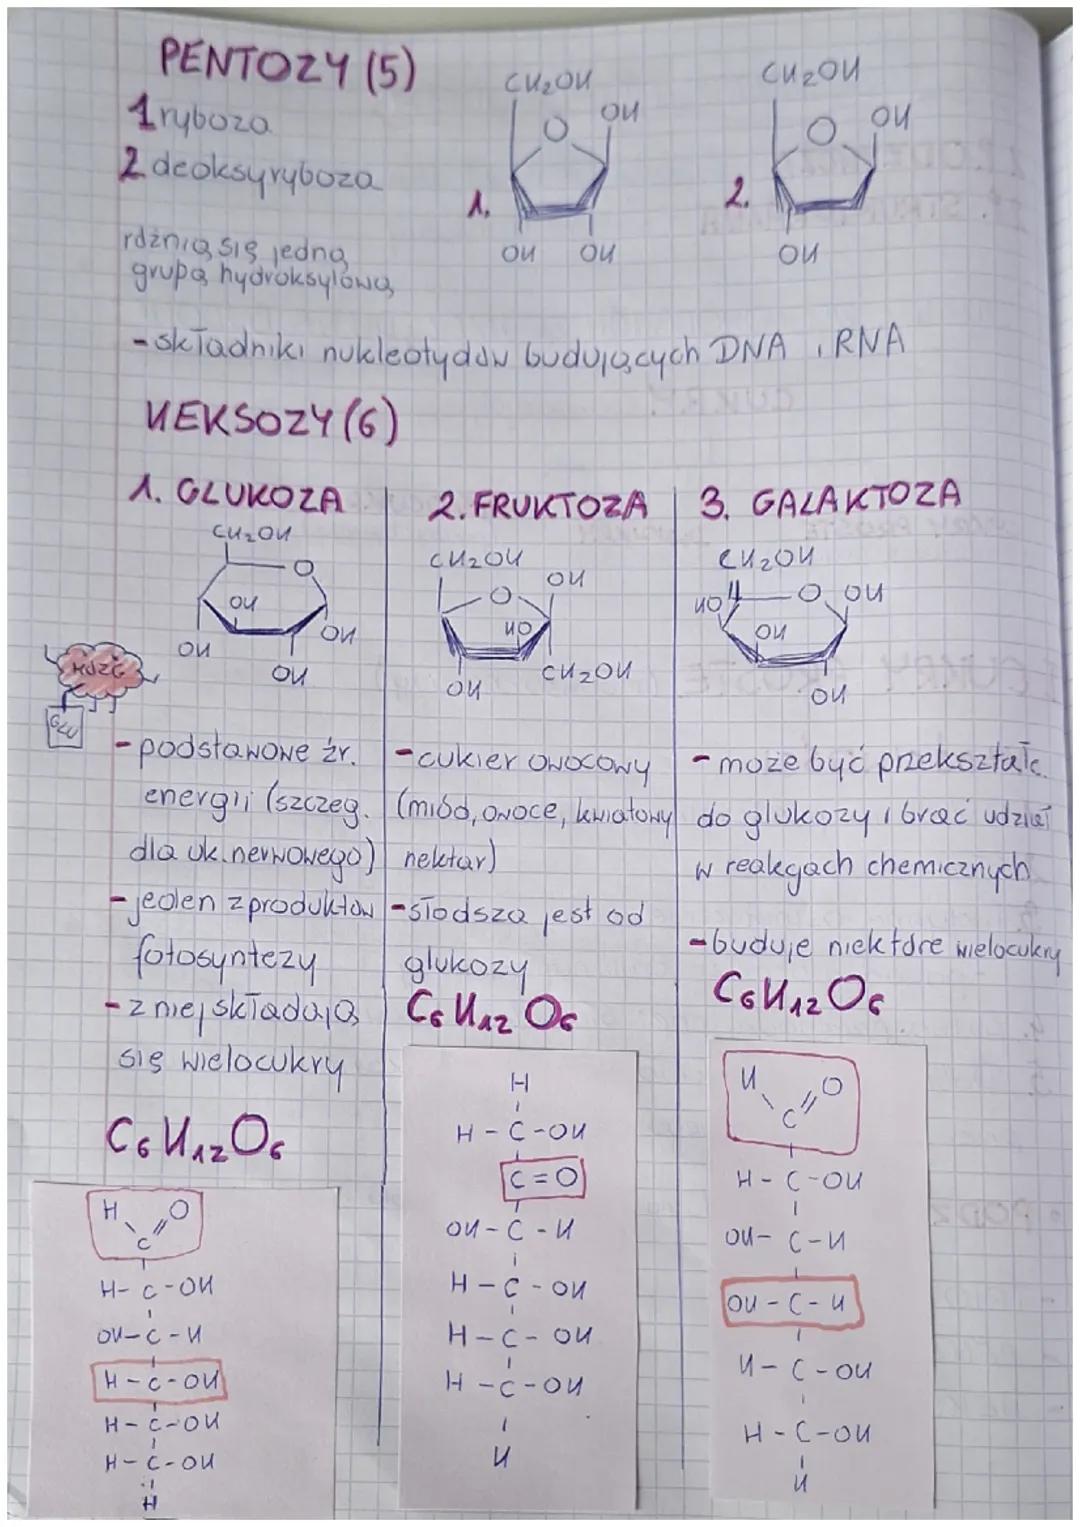 PENTOZY (5)
1 ryboza
2 deoksyryboza
różnią się jedną
grupą hydroksylową
1.
CH2OH
O
OH
OH OH
2.
CH2OH
O
OH
OH
- składniki nukleotydów budujących DNA i RNA
HEKSOZY (6)
1. GLUKOZA
CH2OH
O
OH
OH
OH
OH
MÓZG
GLU
- podstawowe źr.
energii (szczeg.
dla uk. nerwowego)
- jeden z produktów
fotosyntezy
- z niej składają
się wielocukry
C6H12O6
H O
C
H - C - OH
OH - C - H
H - C - OH
H - C - OH
H - C - OH
H
2. FRUKTOZA
CH2OH
O
OH
HO
OH
CH2OH
- cukier owocowy
(miód, owoce, kwiatowy
nektar)
- słodsza jest od
glukozy
C6H12O6
H
H - C - OH
C = O
OH - C - H
H - C - OH
H - C - OH
H - C - OH
H
3. GALAKTOZA
CH2OH
HO
O
OH
OH
OH
- może być przekształc.
do glukozy i brać udział
w reakcjach chemicznych
- buduje niektóre wielocukry
C6H12O6
H O
C
H - C - OH
OH - C - H
OH - C - H
H - C - OH
H - C - OH
H